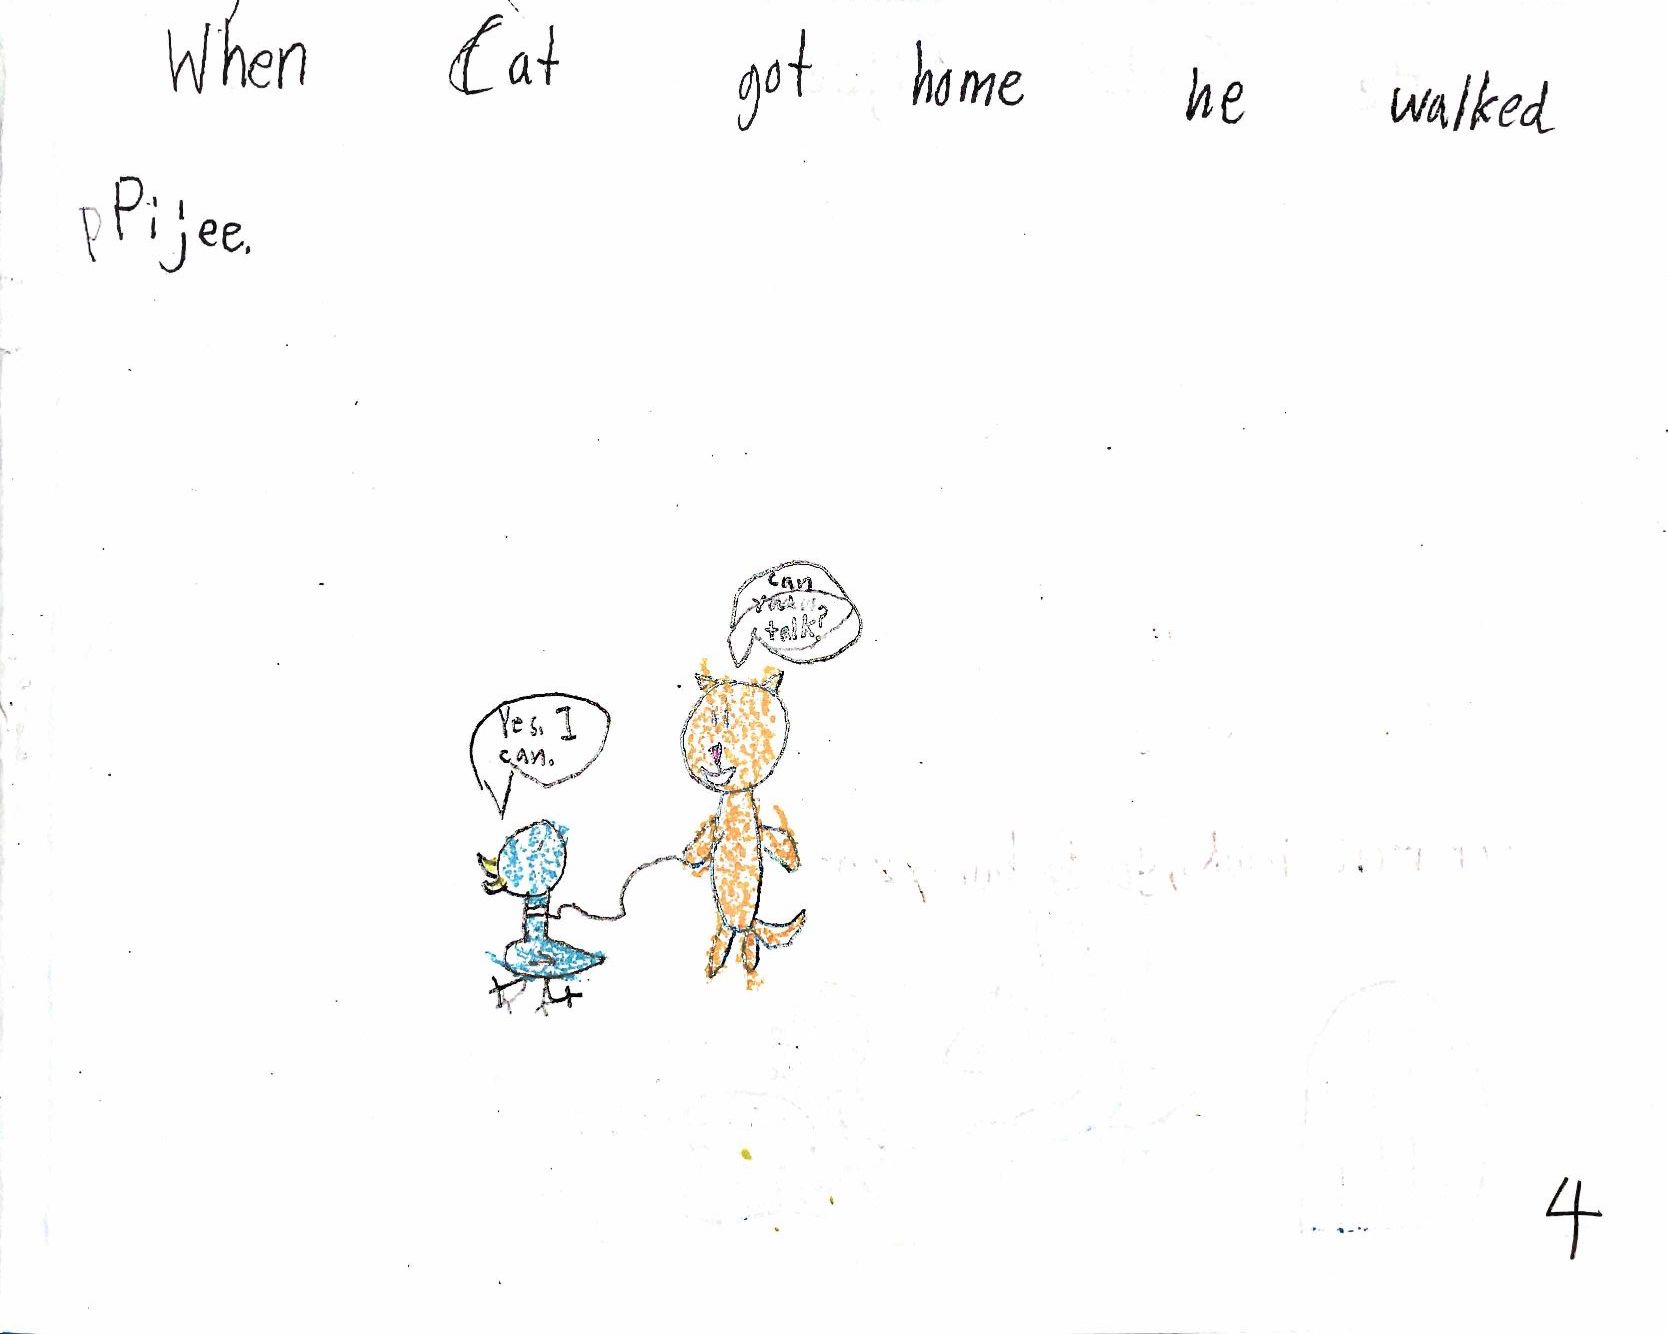 When Cat got home he walked
Pijee.
can
talk?
Yes, I
can.
4